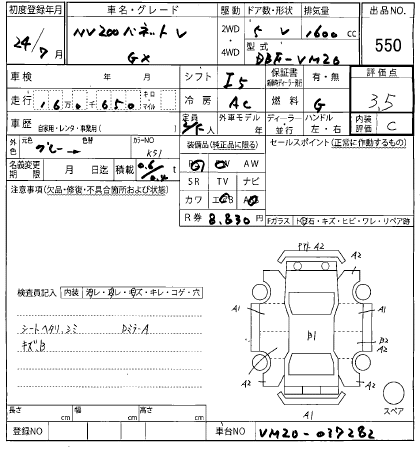 初度登録年月 車名・グレード 駆動 ドア数・形状 排気量 出品NO.
24年 7月 NV200バネットV GX 2WD 4WD 5 V 1600 cc 550
型式 DBF-VM20
車検 年 月 シフト I5 保証書 有・無 評価点
走行 16万 千 650 キロ マイル 冷房 AC 燃料 G 3.5
車歴 自家用・レンタ・事業用( ) 定員 2/5人 外車モデル 年 ディーラー・並行 ハンドル 左・右 内装評価 C
外色 元色 グレー → 色替 カラーNO K51 装備品(純正品に限る) セールスポイント(正常に作動するもの)
名義変更期限 月 日迄 積載 0.6/0.4 t PS PW AW
注意事項(欠品・修復・不具合箇所および状態) SR TV ナビ
カワ エアB AB
R券 8,830円 Fガラス トビ石・キズ・ヒビ・ワレ・リペア跡
検査員記入 内装 ヨゴレ・コゲ・キズ・キレ・コゲ・穴
シートヘタリ、シミ DミラーA
キズ、B
A2
A2
A2
A1
A1
B1
B2
A2
A2
A1
スペア
長さ cm 幅 cm 高さ cm
登録NO 車台NO VM20-037282